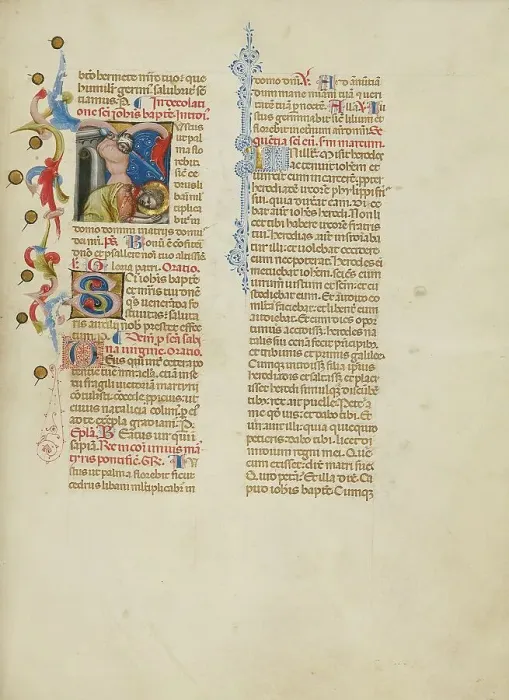 humili gerim salubrit sē
tiamus. P. In decolati
one sci iohis bapte. Introi.
Iustus
ut pal
ma flo
rebit
sic ce
drus li
bani ml
tiplica
bit in
domo domini
Bonū ē cōfiteri
dno et psallere noi tuo altissie
Gloria patri. Oratio.
Sci iohis bapte
et mris tui dne
qs veneranda fe
stivitas: saluta
ris auxilii nob prestet effec
tum. P. Item p sca sabi
na virgine. oratio.
Deus qui inter cetera po
tentie tue miracla. etiā in se
xu fragili victoriā martirii
cōtulisti. cōcede. ut
cuius natalicia colim. p ei
ad te exēpla gradiam. P.
Epla. Beatus vir qui i
sapia. Re in coi unius mar
tyris pontific. GR. Iu
stus ut palma florebit sicut
cedrus libani mltiplicabit in
domo dni. V. Ad anūtiā
dum mane miam tuā et veri
tatē tuā p noctē. Alla. V. Iu
stus germinabit sic lilium et
florebit in eternum ante dnm. Se
quētia sci eu. sm marcum.
In ill t. Misit herodes
ac tenuit iohem et
vinxit eum in carcere. ppter
herodiadē uxorē phylippi fris
sui. quia duxerat eam. Dice
bat aut iohes herodi. Non li
cet tibi habere uxorē fratris
tui. Herodias aut insidiaba
tur illi: et volebat occidere
eum nec poterat. Herodes eī
metuebat iohem. sciēs eum
virum iustum et scm: et cu
stodiebat eum. Et audito eo
mlta faciebat: et libent eum
audiebat. Et cum dies opor
tunus accidisset. herodes na
talis sui cenā fecit pncipib
et tribunis et primis galilee.
Cumqz introisset filia ipsius
herodiadis et saltasset et placu
isset herodi simulqz discūbē
tibus. rex ait puelle. Pete a
me qd vis: et dabo tibi. Et
iuravit illi. quia quicquid
petieris: dabo tibi. licet di
midium regni mei. Que
cum exisset: dix matri sue.
Quid petam? Et illa dix. Ca
put iohis bapte. Cumqz